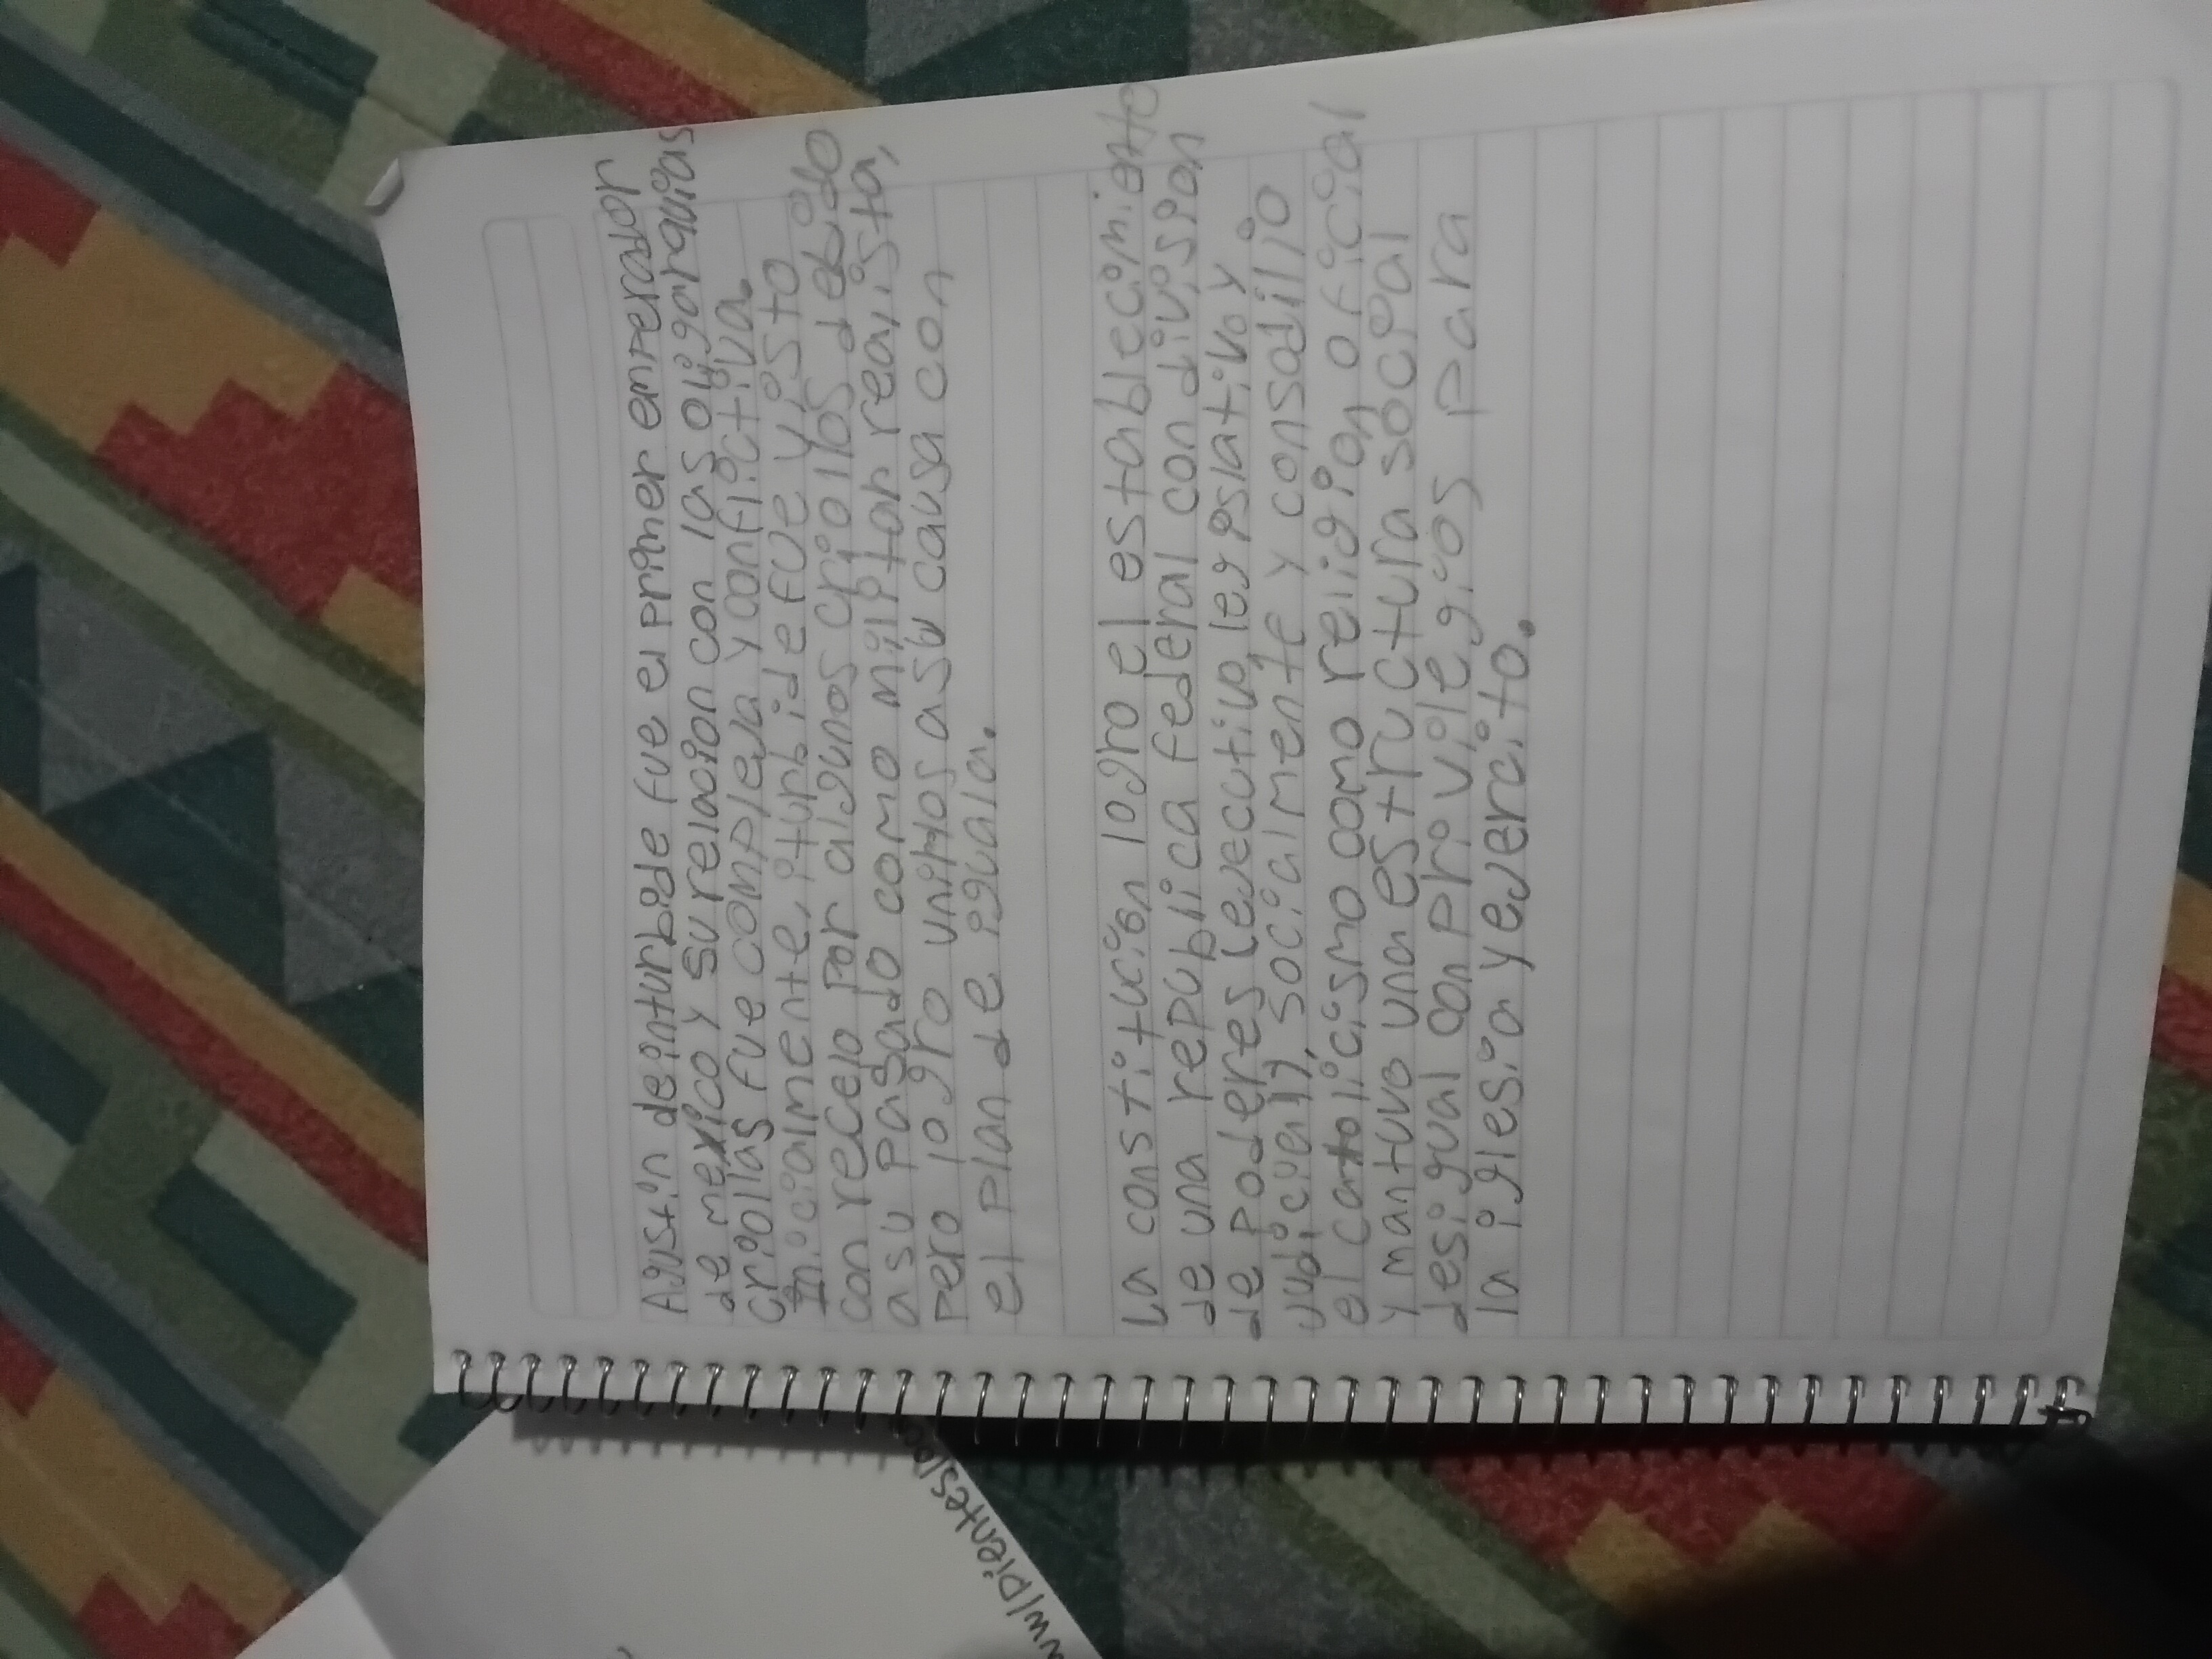 Agustín de iturbide fue el primer emperador
de mexico y su relacion con las oligarquias
criollas fue compleja y conflictiva.
Inicialmente, iturbide fue visto
con recelo por algunos criollos debido
a su pasado como militar realista,
pero logro unirlos a su causa con
el plan de iguala.
La constitución logro el establecimiento
de una republica federal con division
de poderes (ejecutivo legislativo y
judicial), socialmente y consadilio
el catolicismo como religion oficial
y mantuvo una estructura social
desigual con privilegios para
la iglesia y ejercito.